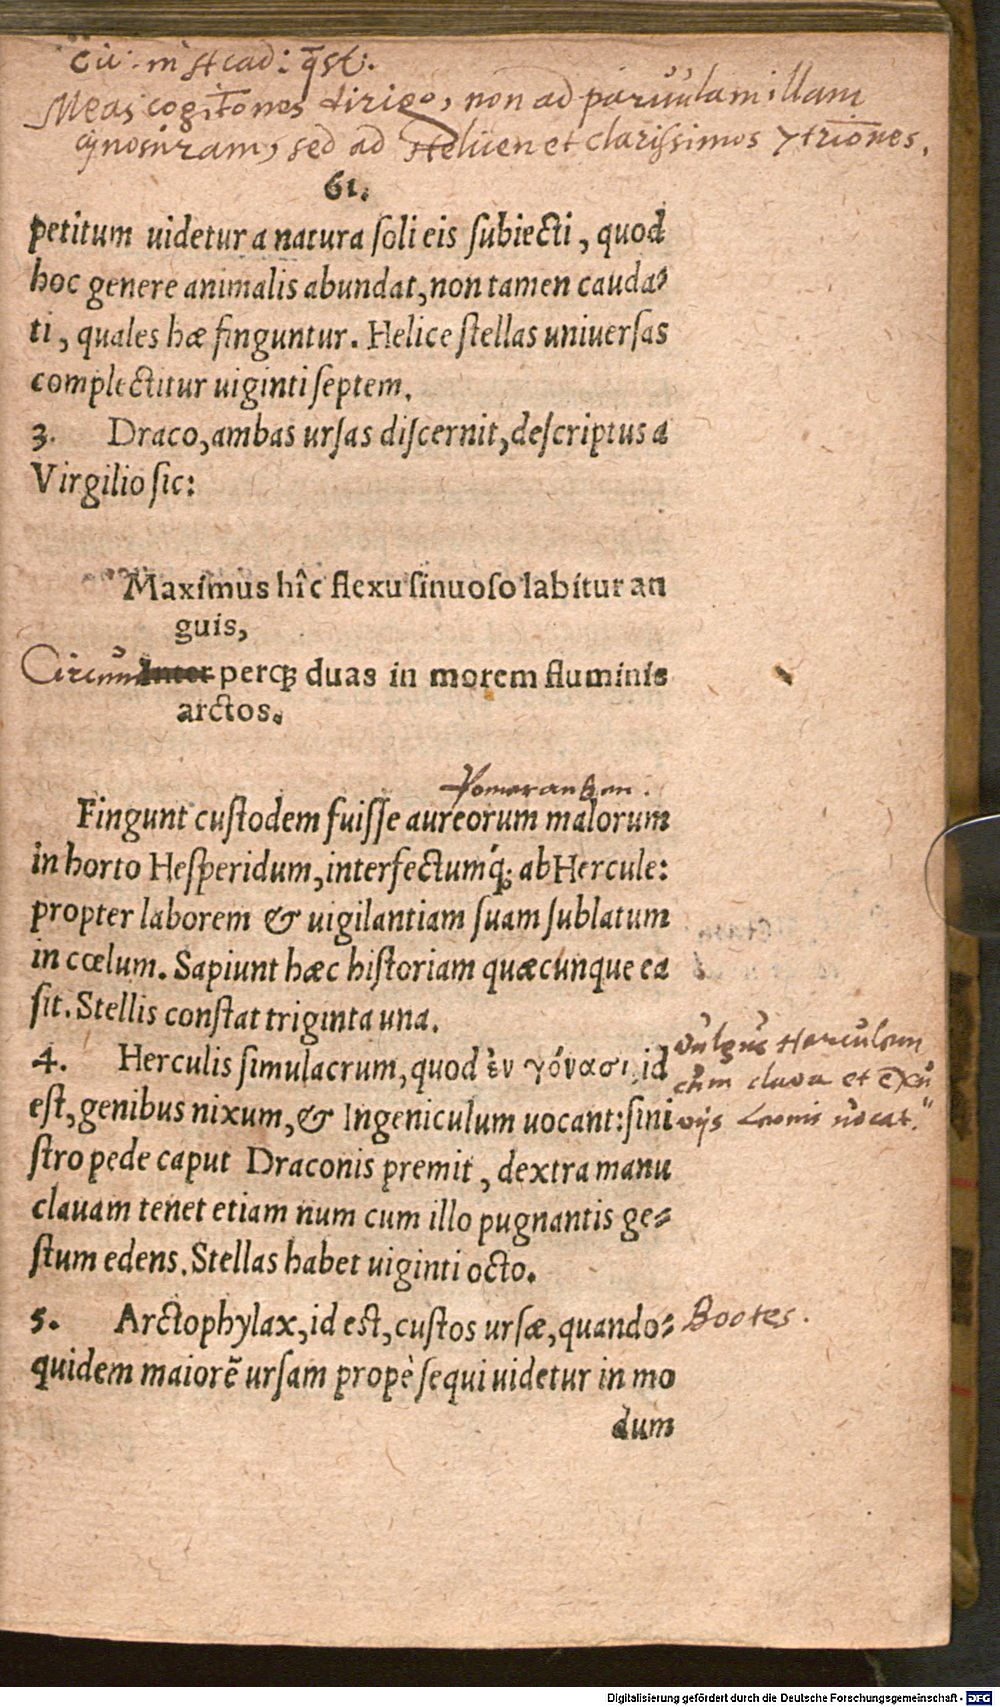 Cic: in 4 acad: q̄st:
Meas cogitōnes dirigo, non ad paruulam illam
cynosuram, sed ad Helicen et clarissimos 7triōnes.
61.
petitum uidetur a natura ſoli eis ſubiecti, quod
hoc genere animalis abundat, non tamen cauda⸗
ti, quales hæ finguntur. Helice ſtellas univerſas
complectitur uiginti ſeptem.
3. Draco, ambas urſas diſcernit, deſcriptus a
Virgilio ſic:
Maximus hîc flexu ſinuoſo labitur an
guis,
Circūm Inter perq; duas in morem fluminis
arctos.
Pomerantzen.
Fingunt cuſtodem fuiſſe aureorum malorum
in horto Heſperidum, interfectumq́; ab Hercule:
propter laborem & uigilantiam ſuam ſublatum
in cœlum. Sapiunt hæc hiſtoriam quæcunque ea
ſit. Stellis conſtat triginta una.
4. Herculis ſimulacrum, quod ἐν γόνασι, id
eſt, genibus nixum, & Ingeniculum uocant: ſini
ſtro pede caput Draconis premit, dextra manu
clauam tenet etiam num cum illo pugnantis ge⸗
ſtum edens. Stellas habet uiginti octo.
vulgus Herculem
cum claua et exu
viis Leonis uocat.
5. Arctophylax, id eſt, cuſtos urſæ, quando⸗
Bootes.
quidem maiorē urſam propè ſequi uidetur in mo
dum
Digitalisierung gefördert durch die Deutsche Forschungsgemeinschaft - DFG